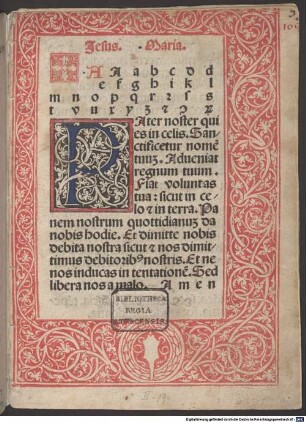 Jesus. Maria.
A a b c d d
e f g h i k l
m n o p q r r s s
t v u x y z
Pater noster qui
es in celis. San
ctificetur nomē
tuuz. Adueniat
regnum tuum.
Fiat voluntas
tua: sicut in ce
lo ⁊ in terra. Pa
nem nostrum quottidianuz da
nobis hodie. Et dimitte nobis
debita nostra sicut ⁊ nos dimit
timus debitorib⁹ nostris. Et ne
nos inducas in tentationē. Sed
libera nos a malo. Amen
BIBLIOTHECA
REGIA
MONACENSIS.